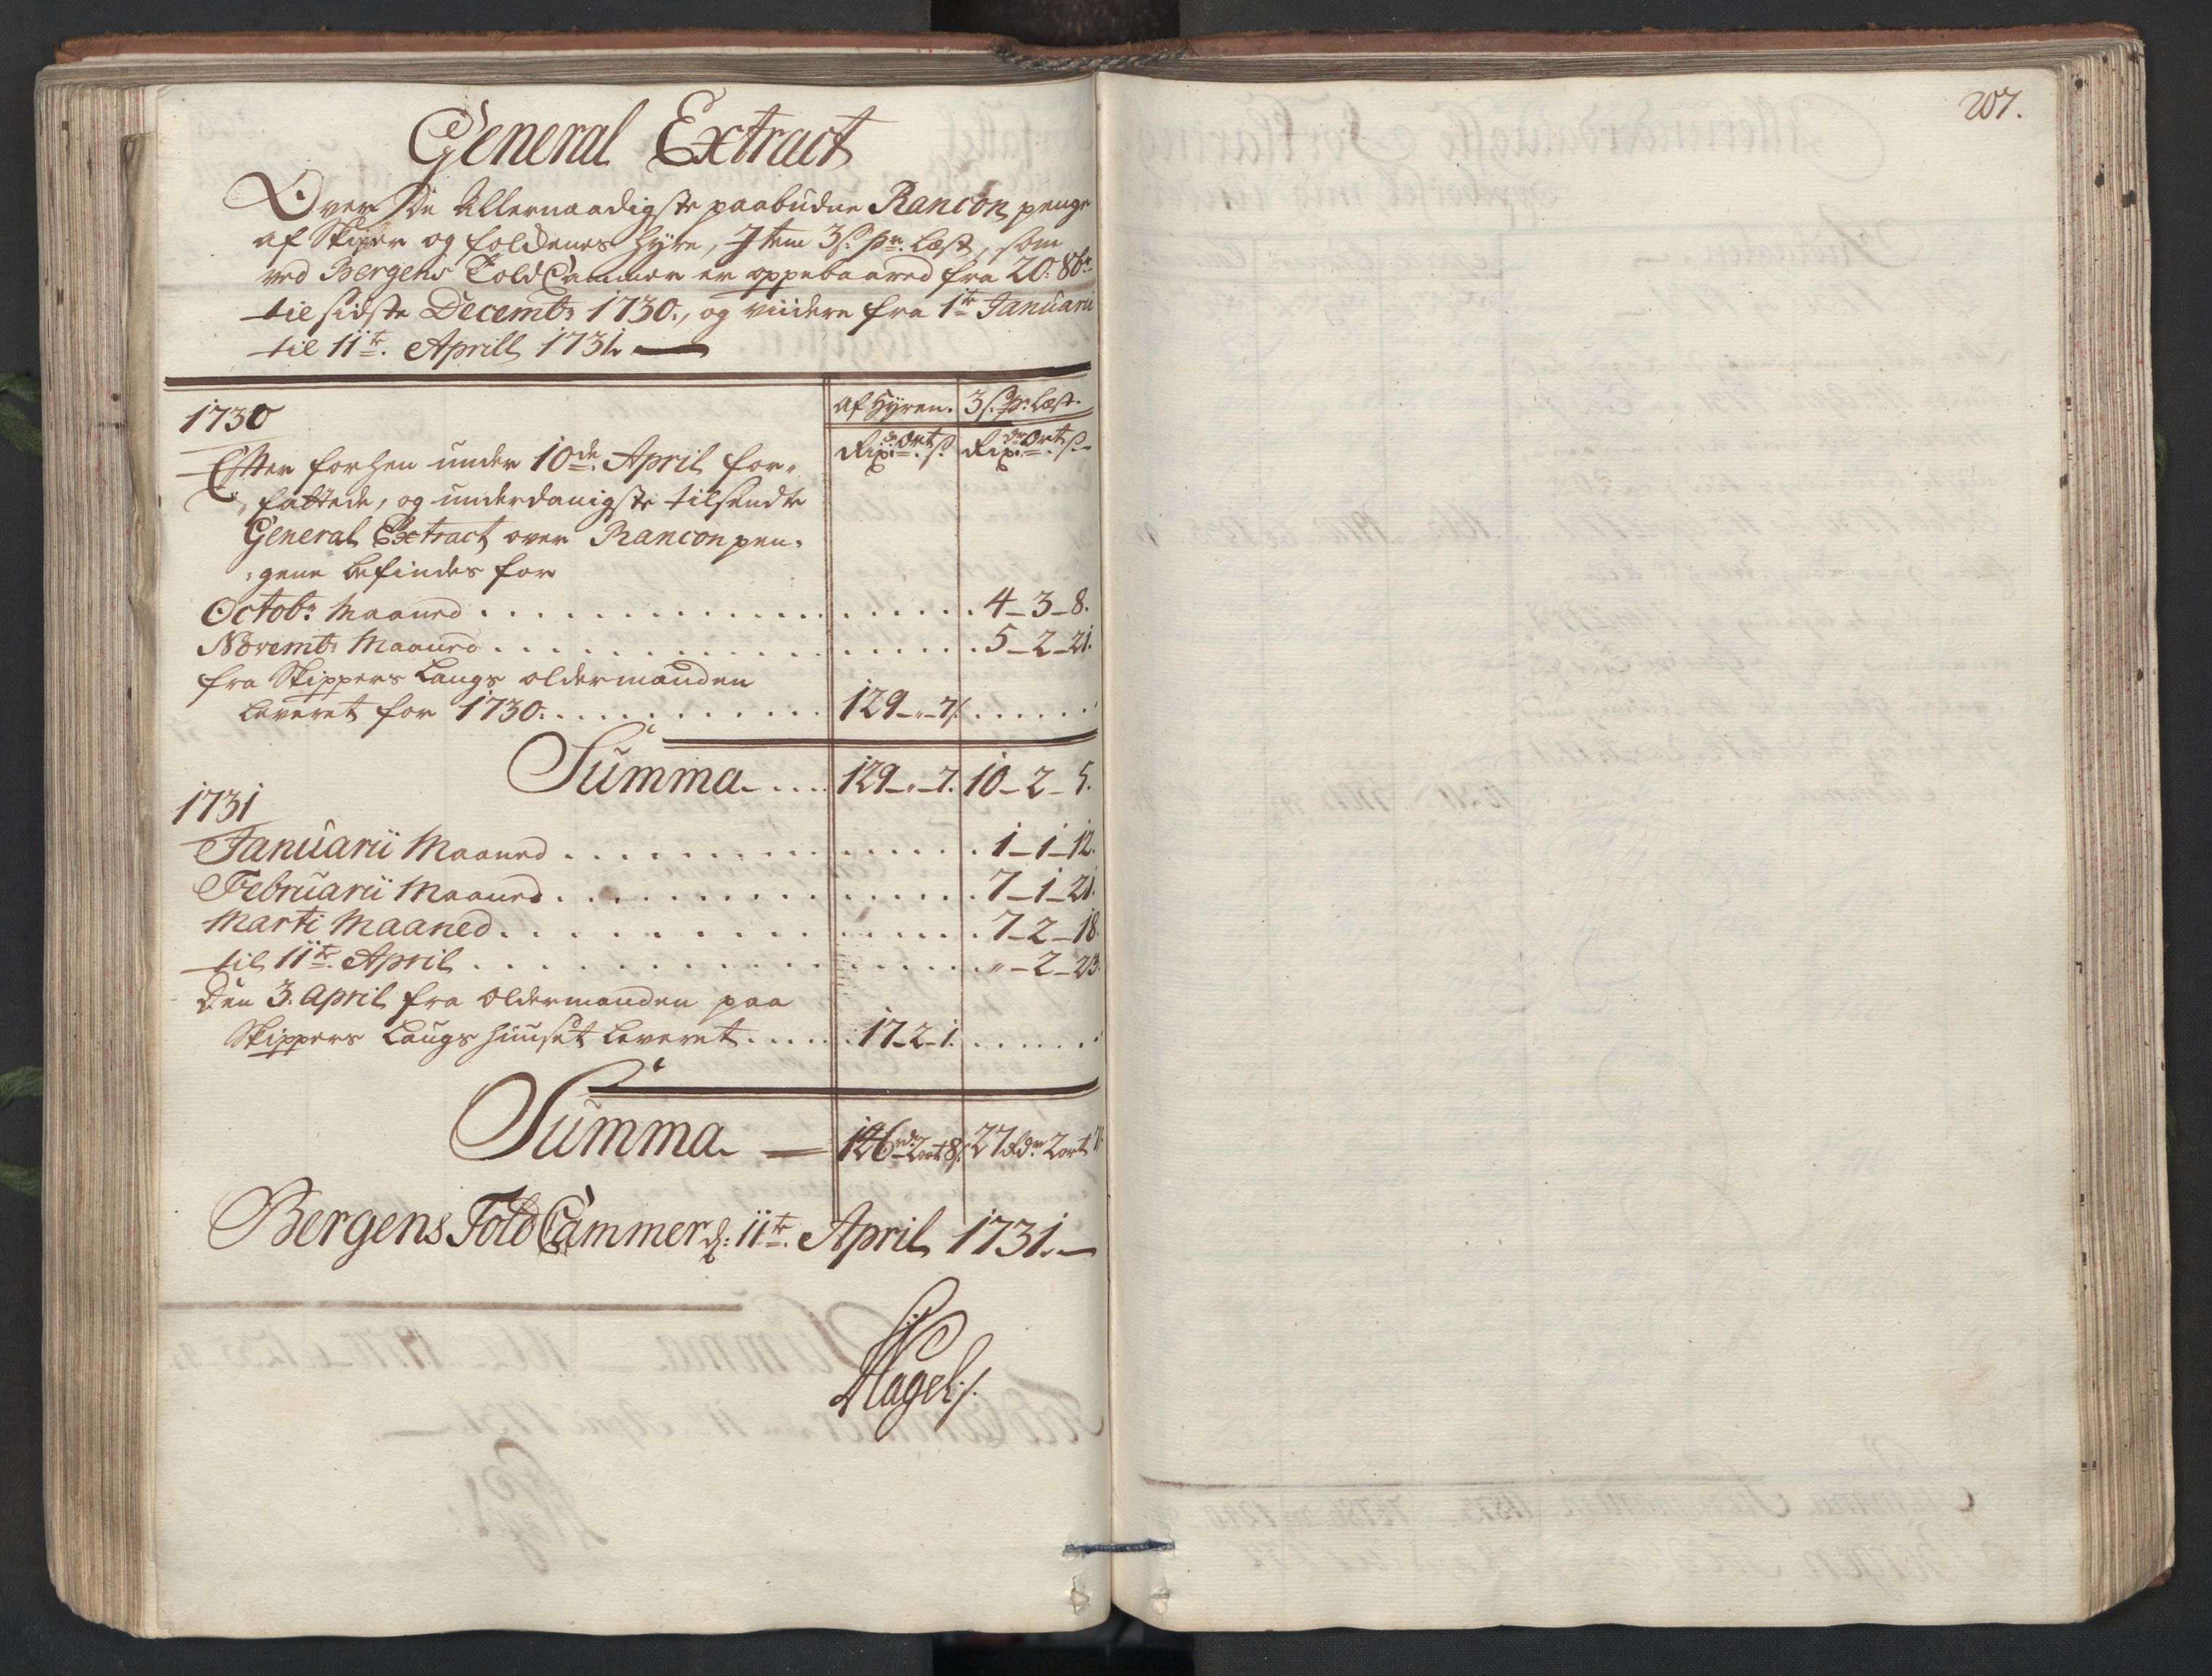 207.
General Extract
Over De Allernaadigste paabudne Rancon penge
af Skipper og folckenes hyre, Item 3 s. pr. Læst, som
ved Bergens Told Cammer er oppebaared fra 20. 8br
til sidste Decembr 1730., og viidere fra 1te Januarii
til 11te. Aprill 1731.
af Hyren. 3 s. pr. Læst.
1730
Rixdr. ort s. Rixdr. ort s.
Efter forhen under 10de. April for-
fattede, og underdanigste tilsendte
General Extract over Rancon pen-
gene befindes for
Octobr Maaned . . . . 4 - 3 - 8.
Novembr Maaned . . . . 5 - 2 - 21.
fra Skippers Laugs oldermanden
Leveret for 1730. . . . . 129 - " - 7 s. . . . .
Summa . . . . 129 - " - 7. 10 - 2 - 5.
1731
Januarii Maaned . . . . 1 - 1 - 12.
Februarii Maaned . . . . 7 - 1 - 21.
Marti Maaned . . . . 7 - 2 - 18.
til 11te. April . . . . " - 2 - 23.
Den 3. April fra oldermanden paa
Skippers Laugs huuset Leveret . . . . 17 - 2 - 1. . . . .
Summa — 146 rdr 2 ort 8 s. 27 Rdr 2 ort 7
Bergens Told Cammer d: 11te. April 1731.
Hagel